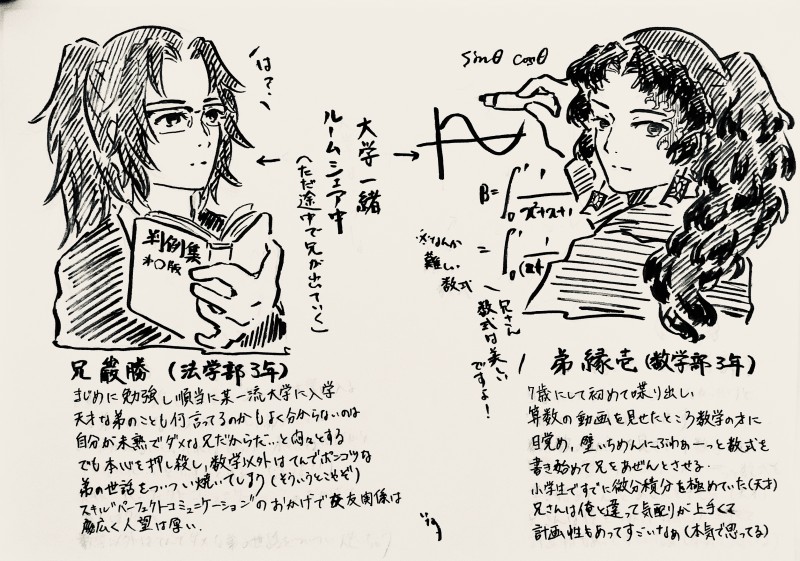 「は?」
判例集
和〇版
大学一緒
ルームシェア中
(ただ途中で兄が出ていく)
sinθ cosθ
B=∫₀¹ 1/x²+x+1
=∫₀¹ 1/(x+
※なんか
難しい
数式
「兄さん
数式は美しい
ですよ!
兄 巌勝 (法学部3年)
まじめに勉強し順当に某一流大学に入学
天才な弟のことも何言ってるのかもよく分からないのは
自分が未熟でダメな兄だからだ…と悶々とする
でも本心を押し殺し、数学以外はてんでポンコツな
弟の世話をついつい焼いてしまう(そういうとこやぞ)
スキル"パーフェクトコミュニケーション"のおかげで交友関係は
幅広く人望は厚い.
弟 縁壱 (数学部3年)
7歳にして初めて喋り出し
算数の動画を見せたところ数学の才に
目覚め、壁いちめんにぶわぁーっと数式を
書き始めて兄をあぜんとさせる.
小学生ですでに微分積分を極めていた(天才)
兄さんは俺と違って気配りが上手くて
計画性もあってすごいなぁ(本気で思ってる)